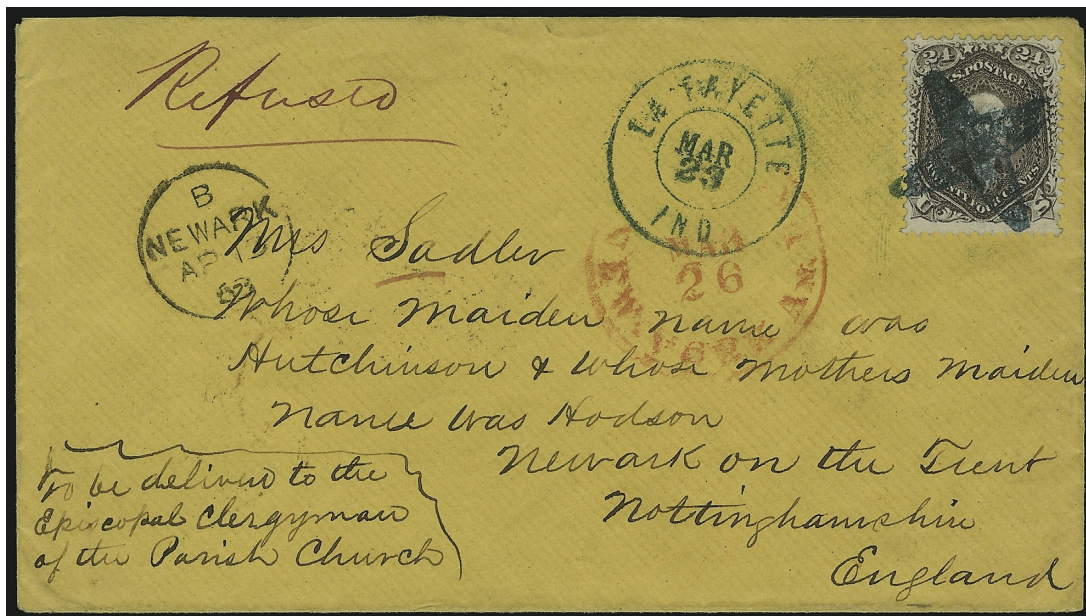 Refused
LA FAYETTE
MAR
23
IND.
24 24
U.S. POSTAGE
TWENTY FOUR CENTS
B
NEWARK
AP
NEW YORK AM.
MAR
26
Mrs Sadler
Whose Maiden name was
Hutchinson & whose Mothers Maiden
Name was Hodson
Newark on the Trent
Nottinghamshire
England
To be delivered to the
Episcopal Clergyman
of the Parish Church